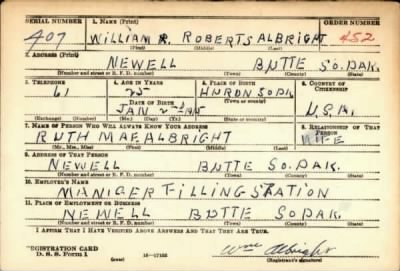 SERIAL NUMBER 1. NAME (Print) ORDER NUMBER
407 WILLIAM R. ROBERTS ALBRIGHT 452
(First) (Middle) (Last)
2. ADDRESS (Print)
NEWELL BUTTE SO. DAK.
(Number and street or R. F. D. number) (Town) (County) (State)
3. TELEPHONE 4. AGE IN YEARS 5. PLACE OF BIRTH 6. COUNTRY OF CITIZENSHIP
61 25 HURON SO DK
DATE OF BIRTH (Town or county)
JAN 2nd 1915 U.S.A.
(Exchange) (Number) (Mo.) (Day) (Yr.) (State or country)
7. NAME OF PERSON WHO WILL ALWAYS KNOW YOUR ADDRESS 8. RELATIONSHIP OF THAT PERSON
RUTH MAE ALBRIGHT WIFE
(Mr., Mrs., Miss) (First) (Middle) (Last)
9. ADDRESS OF THAT PERSON
NEWELL BUTTE SO. DAK.
(Number and street or R. F. D. number) (Town) (County) (State)
10. EMPLOYER'S NAME
MANIGER FILLING STATION
11. PLACE OF EMPLOYMENT OR BUSINESS
NEWELL BUTTE SO DAK
(Number and street or R. F. D. number) (Town) (County) (State)
I AFFIRM THAT I HAVE VERIFIED ABOVE ANSWERS AND THAT THEY ARE TRUE.
REGISTRATION CARD
D. S. S. Form 1 (over) 16-17105 Wm Albright
(Registrant's signature)